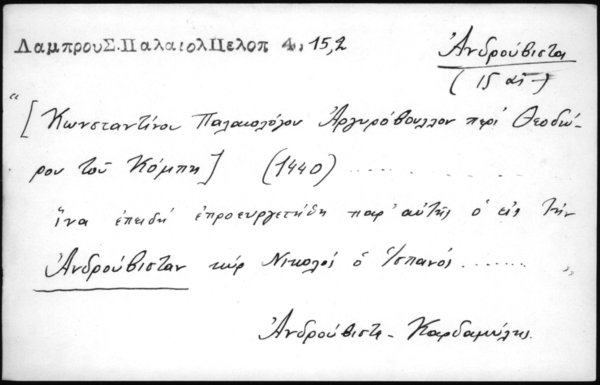 ΛαμπρουΣ.ΠαλαιολΠελοπ 4, 15,2
Ἀνδρούβιστα
(15 αἰ-)
“[Κωνσταντίνου Παλαιολόγου Ἀργυρόβουλλον περί Θεοδώ-
ρου τοῦ Κόμπη] (1440) ...........
ἵνα ἐπειδή ἐπροευεργετήθη παρ' αὐτῆς ὁ εἰς τήν
Ἀνδρούβισταν κύρ Νικολός ὁ Ἱσπανός ......... ”
Ἀνδρούβιστα - Καρδαμύλης.